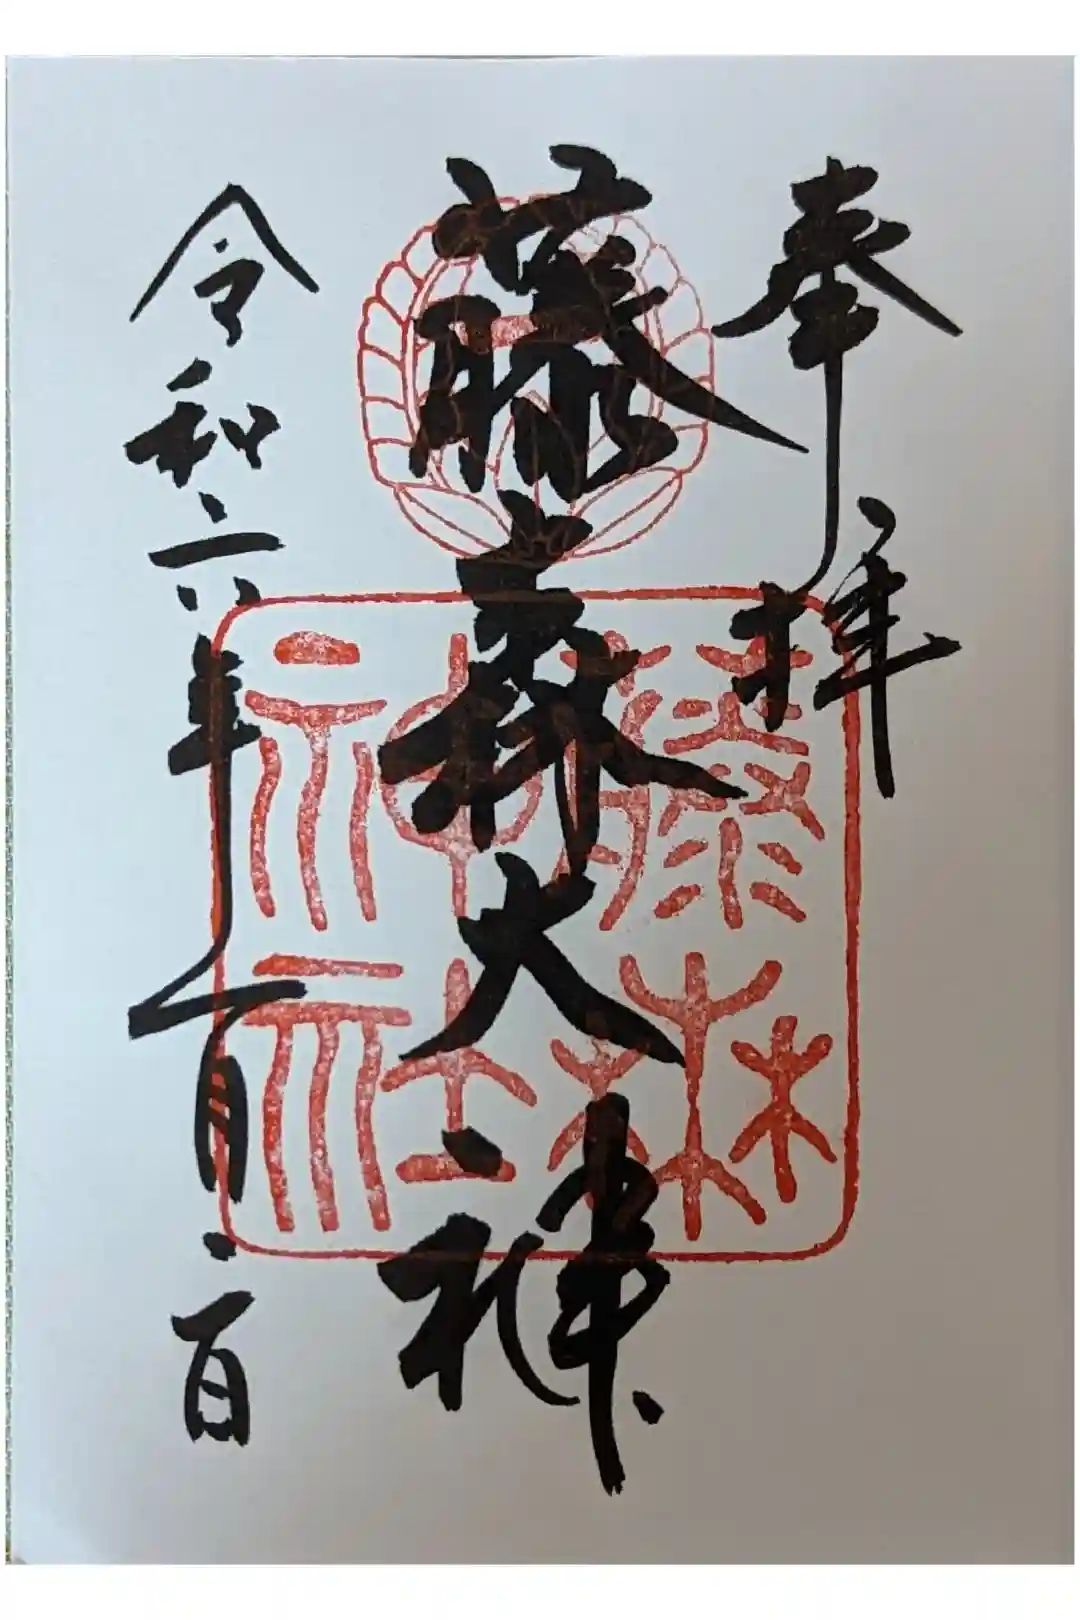 奉拝
藤森大神
藤森
神社
令和六年一月二日